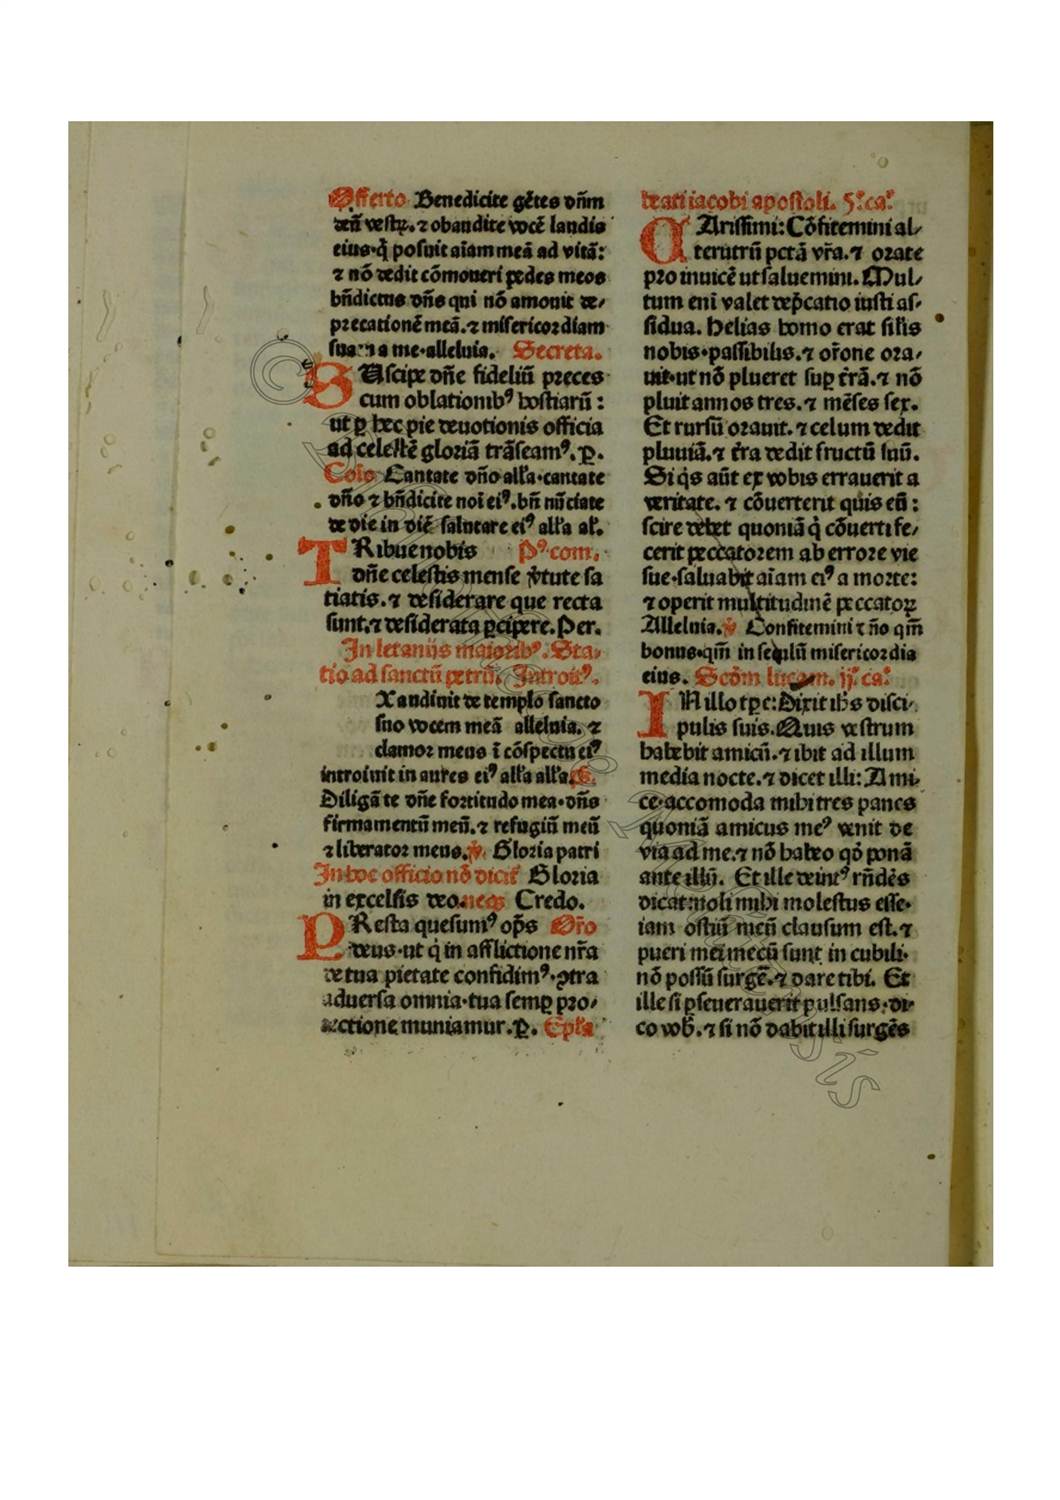 Offerto Benedicite gētes dñm
deū vestrꝝ. ⁊ obaudite vocē laudis
eius·q̇ posuit aīam meā ad vitā:
⁊ nō dedit cōmoueri pedes meos
bñdictus dñs qui nō amouit de/
precationē meā. ⁊ misericordiam
suam a me·alleluia. Secreta.
SUscipe dñe fideliū preces
cum oblationibꝰ hostiarū:
ut ꝑ hec pie deuotionis officia
ad celestē gloriā trāseamꝰ. ꝑ.
Cōio Cantate dño all'a·cantate
dño ⁊ bñdicite noī eiꝰ. bñ nūciate
de die in diē salutare eiꝰ all'a al'.
TRibue nobis Pꝰ com.
dñe celestis mense v̇tute sa
tiatis. ⁊ desiderare que recta
sunt. ⁊ desiderata ꝑcipere. Per.
In letanijs maioribꝰ. Sta/
tio ad sanctū petrū. Introitꝰ.
Xaudiuit de templo sancto
suo vocem meā alleluia. ⁊
clamor meus ī cōspectu eiꝰ
introiuit in aures eiꝰ all'a all'a.
Diligā te dñe fortitudo mea·dñs
firmamentū meū. ⁊ refugiū meū
⁊ liberator meus. ℣. Gloria patri
In hoc officio nō dicit' Gloria
in excelsis deo. neqꝫ Credo.
PResta quesumꝰ oṗs Or̄o
deus·ut q̇ in afflictione nr̄a
de tua pietate confidimꝰ·ꝯtra
aduersa omnia·tua semꝑ pro/
tectione muniamur. ꝑ. Ep̄la
beati iacobi apostoli. 5º. caº.
CArissimi: Cōfitemini al/
terutrū pctā vr̄a. ⁊ orate
pro inuicē ut saluemini. Mul/
tum eni valet dep̄catio iusti as/
sidua. Helias homo erat sil'is
nobis·passibilis. ⁊ or̄one ora/
uit·ut nō plueret suꝑ t'rā. ⁊ nō
pluit annos tres. ⁊ mēses sex.
Et rursū orauit. ⁊ celum dedit
pluuiā. ⁊ t'ra dedit fructū suū.
Si q̇s aūt ex vobis errauerit a
veritate. ⁊ cōuerterit quis eū:
scire debet quoniā q̇ cōuerti fe/
cerit peccatorem ab errore vie
sue·saluabit aīam eiꝰ a morte:
⁊ operit multitudinē peccatorꝝ
Alleluia. ℣ Confitemini dño qm̄
bonus·qm̄ in seculū misericordia
eius. Scḋm lucam. ij. caº.
IN illo tꝑe: Dixit ihs disci/
pulis suis. Quis vestrum
habebit amicū. ⁊ ibit ad illum
media nocte. ⁊ dicet illi: Ami/
ce·accomoda mihi tres panes
quoniā amicus meꝰ venit de
via ad me. ⁊ nō habeo qḋ ponā
ante illū. Et ille deintꝰ rñdēs
dicat: noli mihi molestus esse·
iam ostiū meū clausum est. ⁊
pueri mei mecū sunt in cubili·
nō possū surgē. ⁊ dare tibi. Et
ille si ꝑseuerauerit pulsans·di/
co vob̄. ⁊ si nō dabit illi surgēs